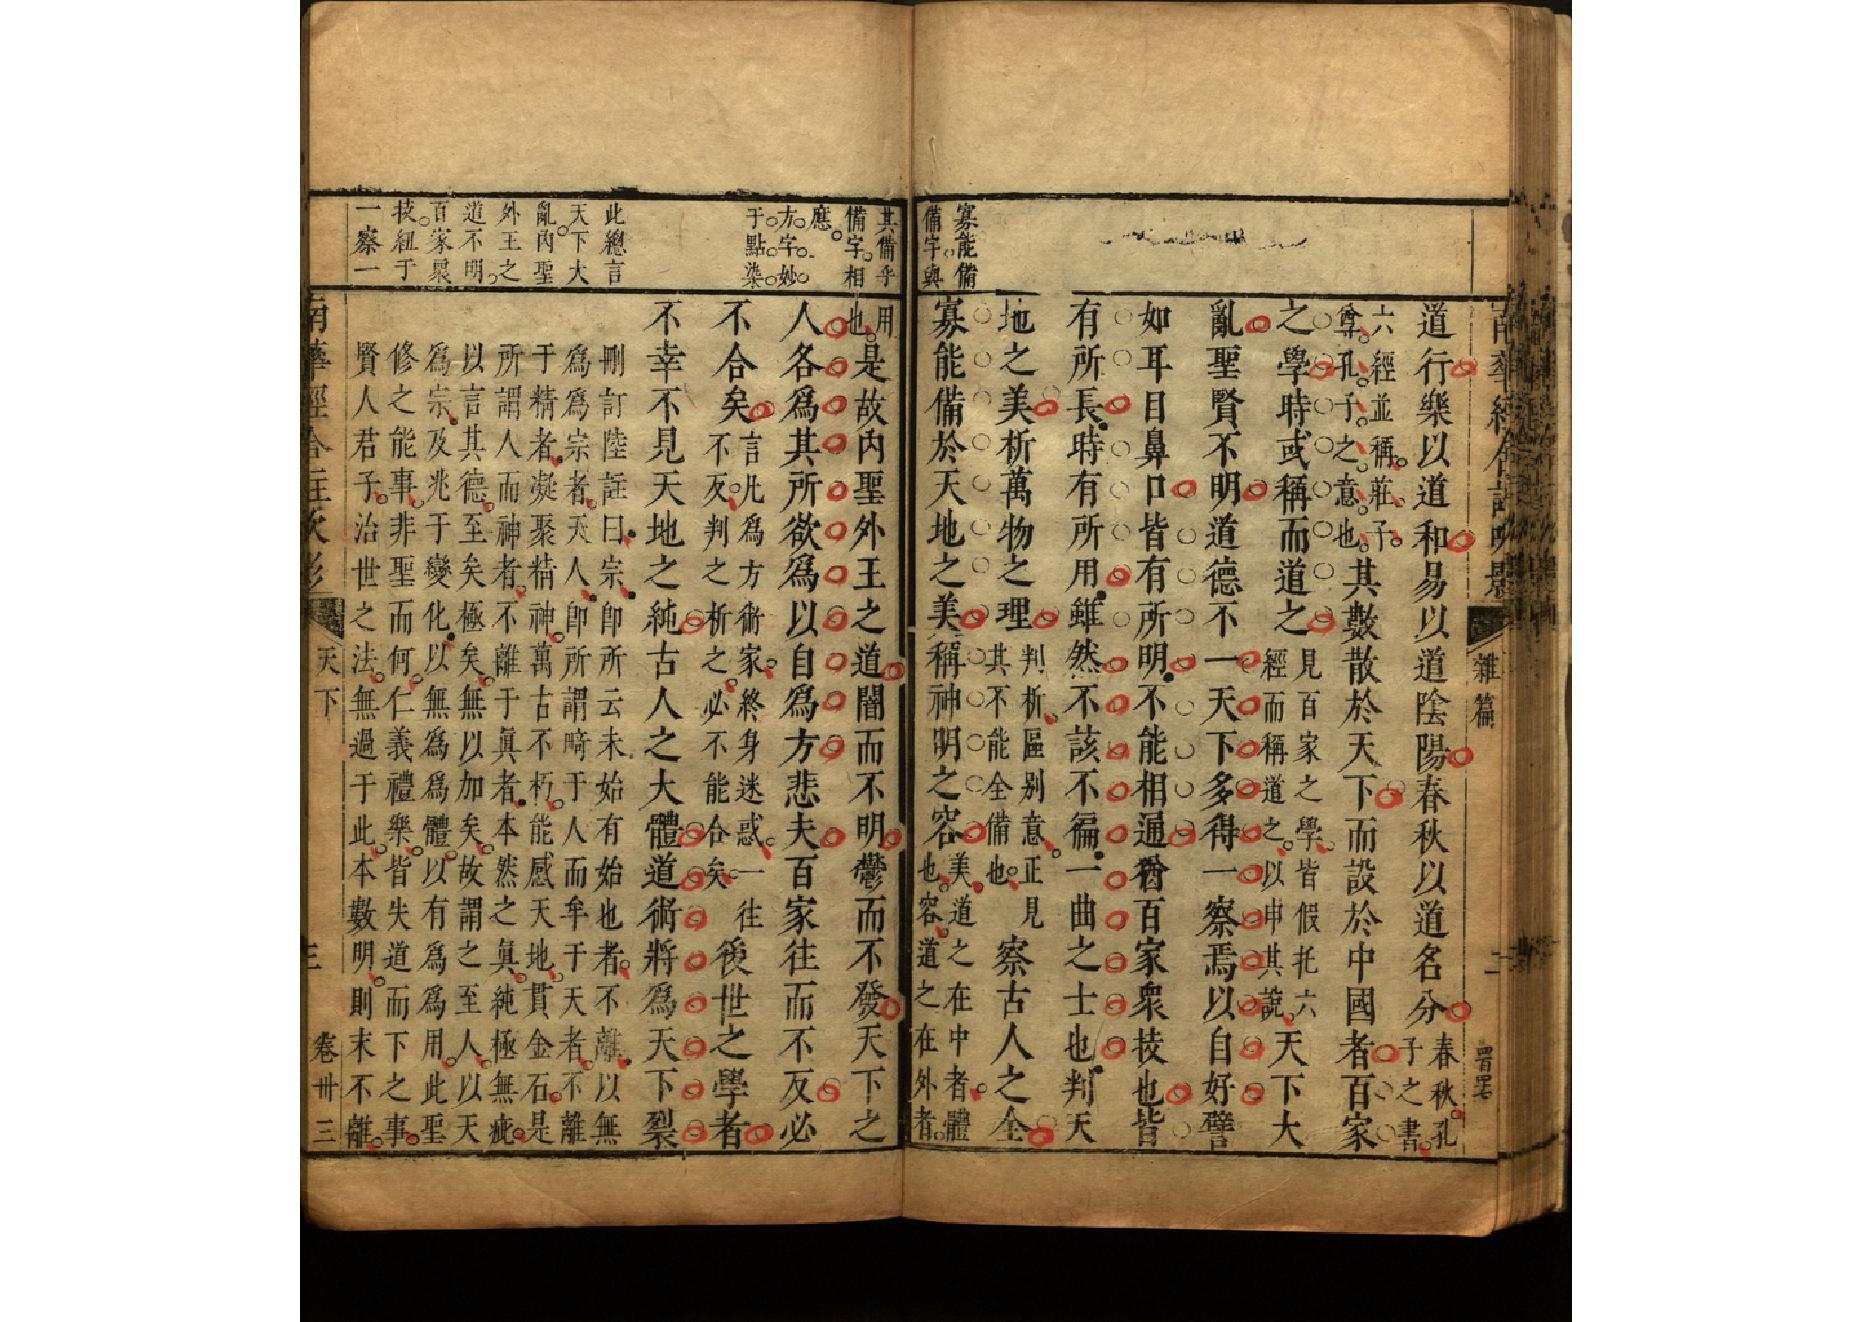 道行樂以道和易以道陰陽春秋以道名分春秋孔子之書
六經並稱莊子尊孔子之意也其數散於天下而設於中國者百家
之學時或稱而道之見百家之學皆假托六經而稱道之以申其說天下大
亂聖賢不明道德不一天下多得一察焉以自好譬
如耳目鼻口皆有所明不能相通猶百家眾技也皆
有所長時有所用雖然不該不徧一曲之士也判天
地之美析萬物之理判析區別意正見其不能全備也察古人之全
寡能備於天地之美稱神明之容美道之在中者體也容道之在外者
寡能備
備字與
雜篇
二
用也是故内聖外王之道闇而不明鬱而不發天下之
人各爲其所欲爲以自爲方悲夫百家往而不反必
不合矣言凡爲方術家終身迷惑一往不反判之析之必不能合矣後世之學者
不幸不見天地之純古人之大體道術將爲天下裂
刪訂陸註曰宗卽所云未始有始也者不離以無
爲爲宗者天人卽所謂畸于人而牟于天者不離
于精者凝聚精神萬古不朽能感天地貫金石是
所謂人而神者不離于眞者本然之眞純極無疵
以言其德至矣極矣無以加矣故謂之至人以天
爲宗及兆于變化以無爲爲體以有爲爲用此聖
修之能事非聖而何仁義禮樂皆失道而下之事
賢人君子治世之法無過于此本數明則末不離
其備乎
備字相
應
方字妙
于點染
此總言
天下大
亂内聖
外王之
道不明
百家眾
技紐于
一察一
天下
三
卷卅三